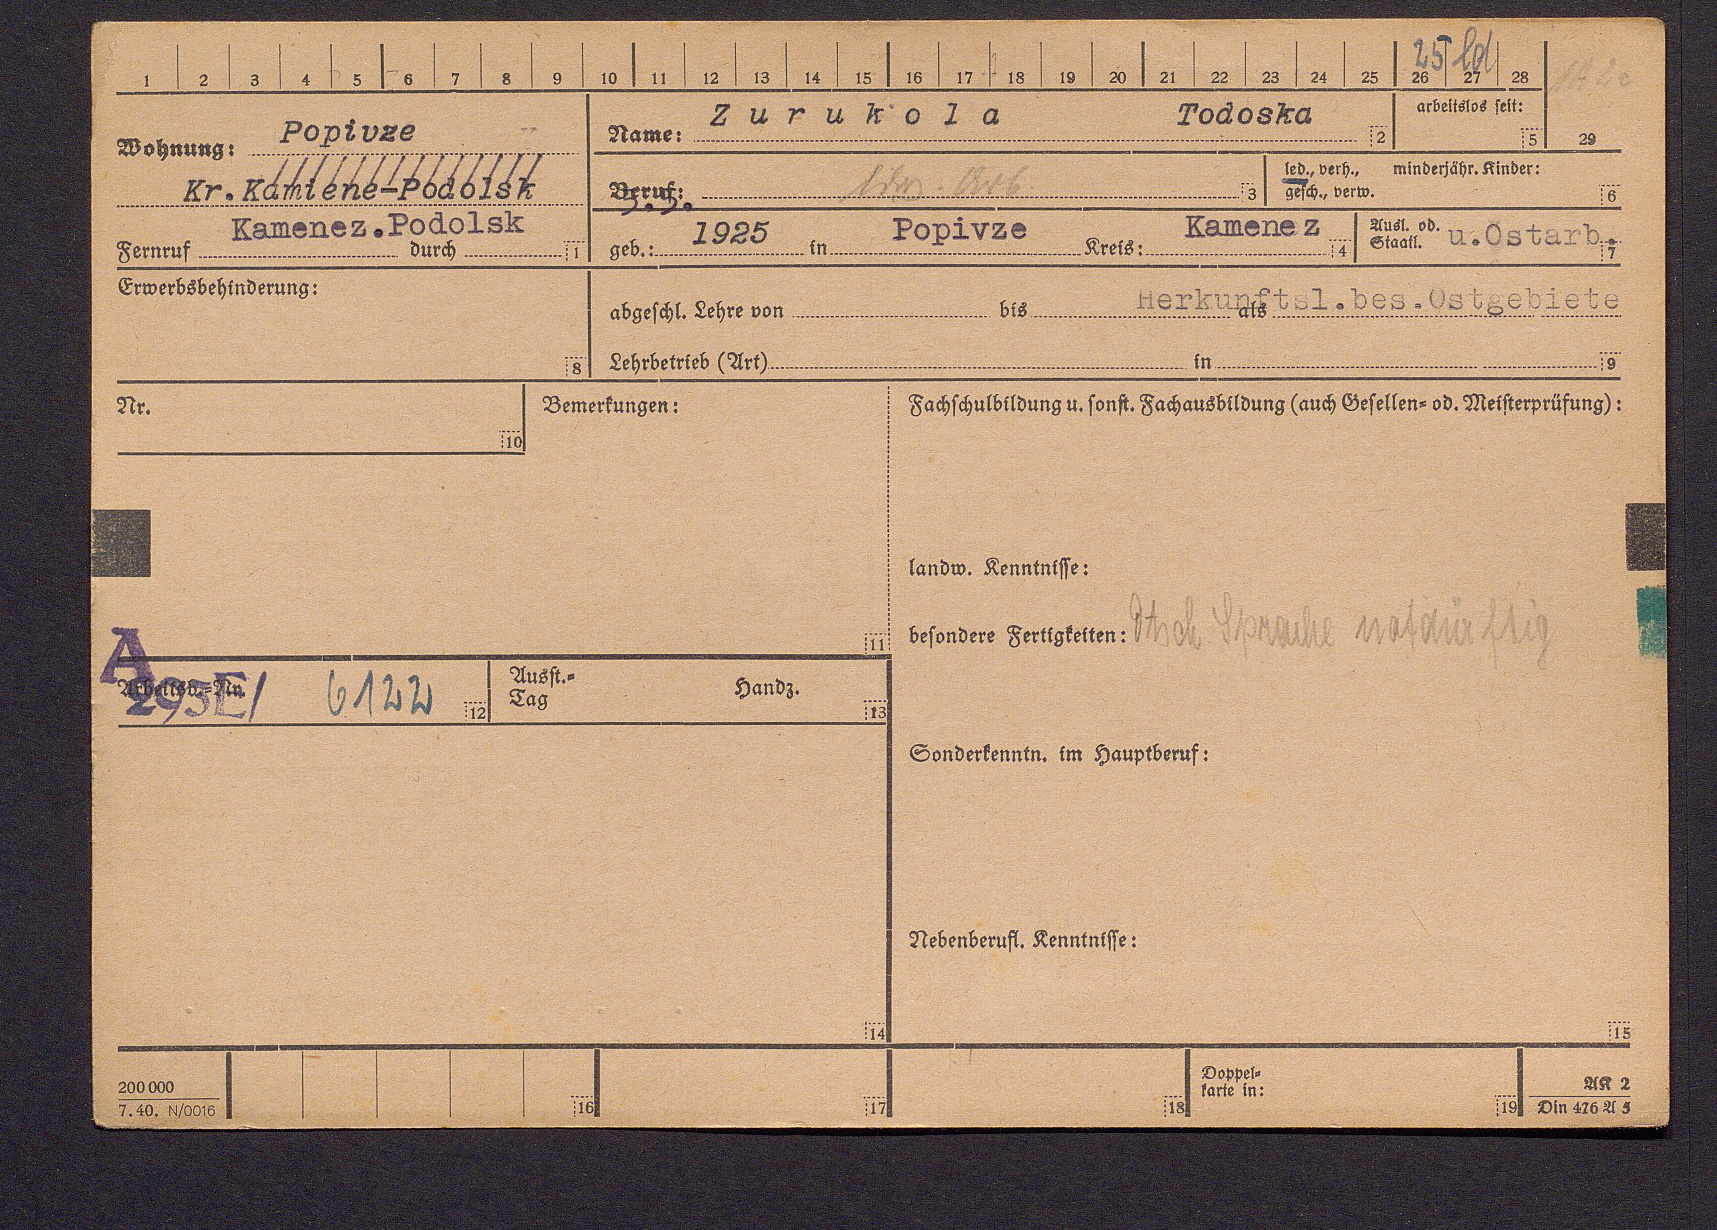 1 2 3 4 5 6 7 8 9 10 11 12 13 14 15 16 17 18 19 20 21 22 23 24 25 26 27 28
25 ld
Wohnung: Popivze
Kr. Kamiene-Podolsk
Kamenez.Podolsk
Fernruf durch 1
Name: Zurukola Todoska 2
arbeitslos seit: 5
29
Beruf: 3
led., verh., minderjähr. Kinder:
gesch., verw. 6
5.5.
geb.: 1925 in Popivze Kreis: Kamenez 4
Ausl. od.
Staatl. u.Ostarb. 7
Erwerbsbehinderung:
8
Herkunftsl.bes.Ostgebiete
abgeschl. Lehre von bis als
Lehrbetrieb (Art) in 9
Nr.
10
Bemerkungen:
11
Fachschulbildung u. sonst. Fachausbildung (auch Gesellen- od. Meisterprüfung):
landw. Kenntnisse:
besondere Fertigkeiten: Dtsch Sprache notdürftig
A
Arbeitsb.-Nr.
293E/ 6122 12
Ausst.-
Tag Handz. 13
Sonderkenntn. im Hauptberuf:
Nebenberufl. Kenntnisse:
14
15
200 000
7. 40. N/0016
16 17 18
Doppel-
karte in: 19
AK 2
Din 476 A 5